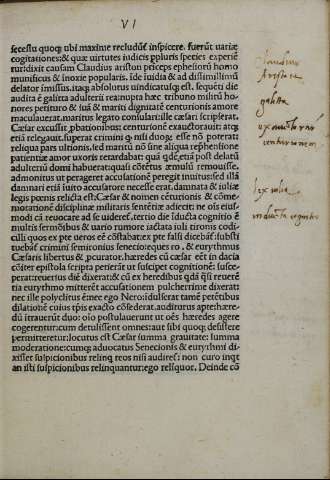 VI
secessu quoq; ubi maxime recludũt inspicere. fuerũt uariæ
cogitationes: & quæ uirtutes iudicis ꝑ pluris species experie
rur: dixit causam Claudius ariston princeps ephesiorũ homo
munificus & inoxie popularis. ide iuidia & ad dissillimũ
delator imissus. itaq; absolutus uindicatusq; est. sequẽti die
audita ẽ galitta adulterii rea: nupta hæc tribuno militũ ho
nores petituro & suã & mariti dignitatẽ centurionis amore
macusauerat. maritus legato consulari: ille cæsari scripserat.
Cæsar excussit ꝓbationibus: centurionẽ exauctorauit: atq;
etiã relegauit. supererat crimini q nisi duoꝝ esse nõ poterat
reliqua pars ultionis. sed maritũ nõ sine aliqua reprehensione
patientiæ amor uxoris retardabat: quã qdẽ etiã post delatũ
adulteriũ domi habuerat: quasi cõtẽtus æmulũ remouisse.
admonitus ut perageret accusationẽ peregit inuitus: sed illã
damnari etiã iuito accusatore necesse erat. damnata & iuliæ
legis pœnis relicta est: Cæsar & nomen cẽturionis & cõme
morationẽ disciplinæ militaris sentẽtiæ adiecit: ne oẽs eius
modi cã reuocare ad se uideret. tertio die iducta cognitio ẽ
multis sermõibus & uario rumore iactata iuli tironis codi
cilli quos ex pte ueros eẽ cõstabat: ex pte falsi dicebãt. substi
tuebãt crimini semronius senecio: eques ro. & eurythmus
Cæsaris libertus & ꝓcurator. hæredes cũ cæsar eẽt in dacia
cõiter epistola scripta petierãt ut susciper cognitionẽ: susce
perat: reuersus diẽ dixerat: & cũ ex heredibus qdã qsi reuerẽ
tia eurythmo mitterẽt accusationem pulcherrime dixerat:
nec ille polyclitus ẽ nec ego Nero: idulserat tamẽ petẽtibus
dilationẽ cuius tꝑis exacto cõsederat. auditurus aptr: hære
dũ itrauerũt duo: oio postulauerunt ut oẽs hæredes agere
cogerentur: cum detulissent omnes: aut sibi quoq; desistere
permitteretur: locutus est Cæsar summa grauitate: summa
moderatione: cumq; aduocatus Senecionis & eurythmi di
xisset suspicionibus relinq reos nisi audiret: non curo inqt
an isti suspicionibus relinquantur: ego relíquor. Deinde cõ
Claudius
Ariston
galitta
lex iulia